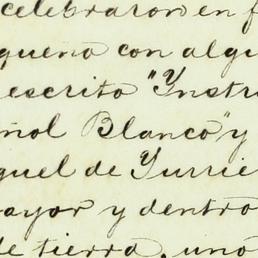 celebraron en f
queño con algu
escrito "Ynstr
ñol Blanco" y
guel de Yurrie
ayor y dentro
de tierra, uno